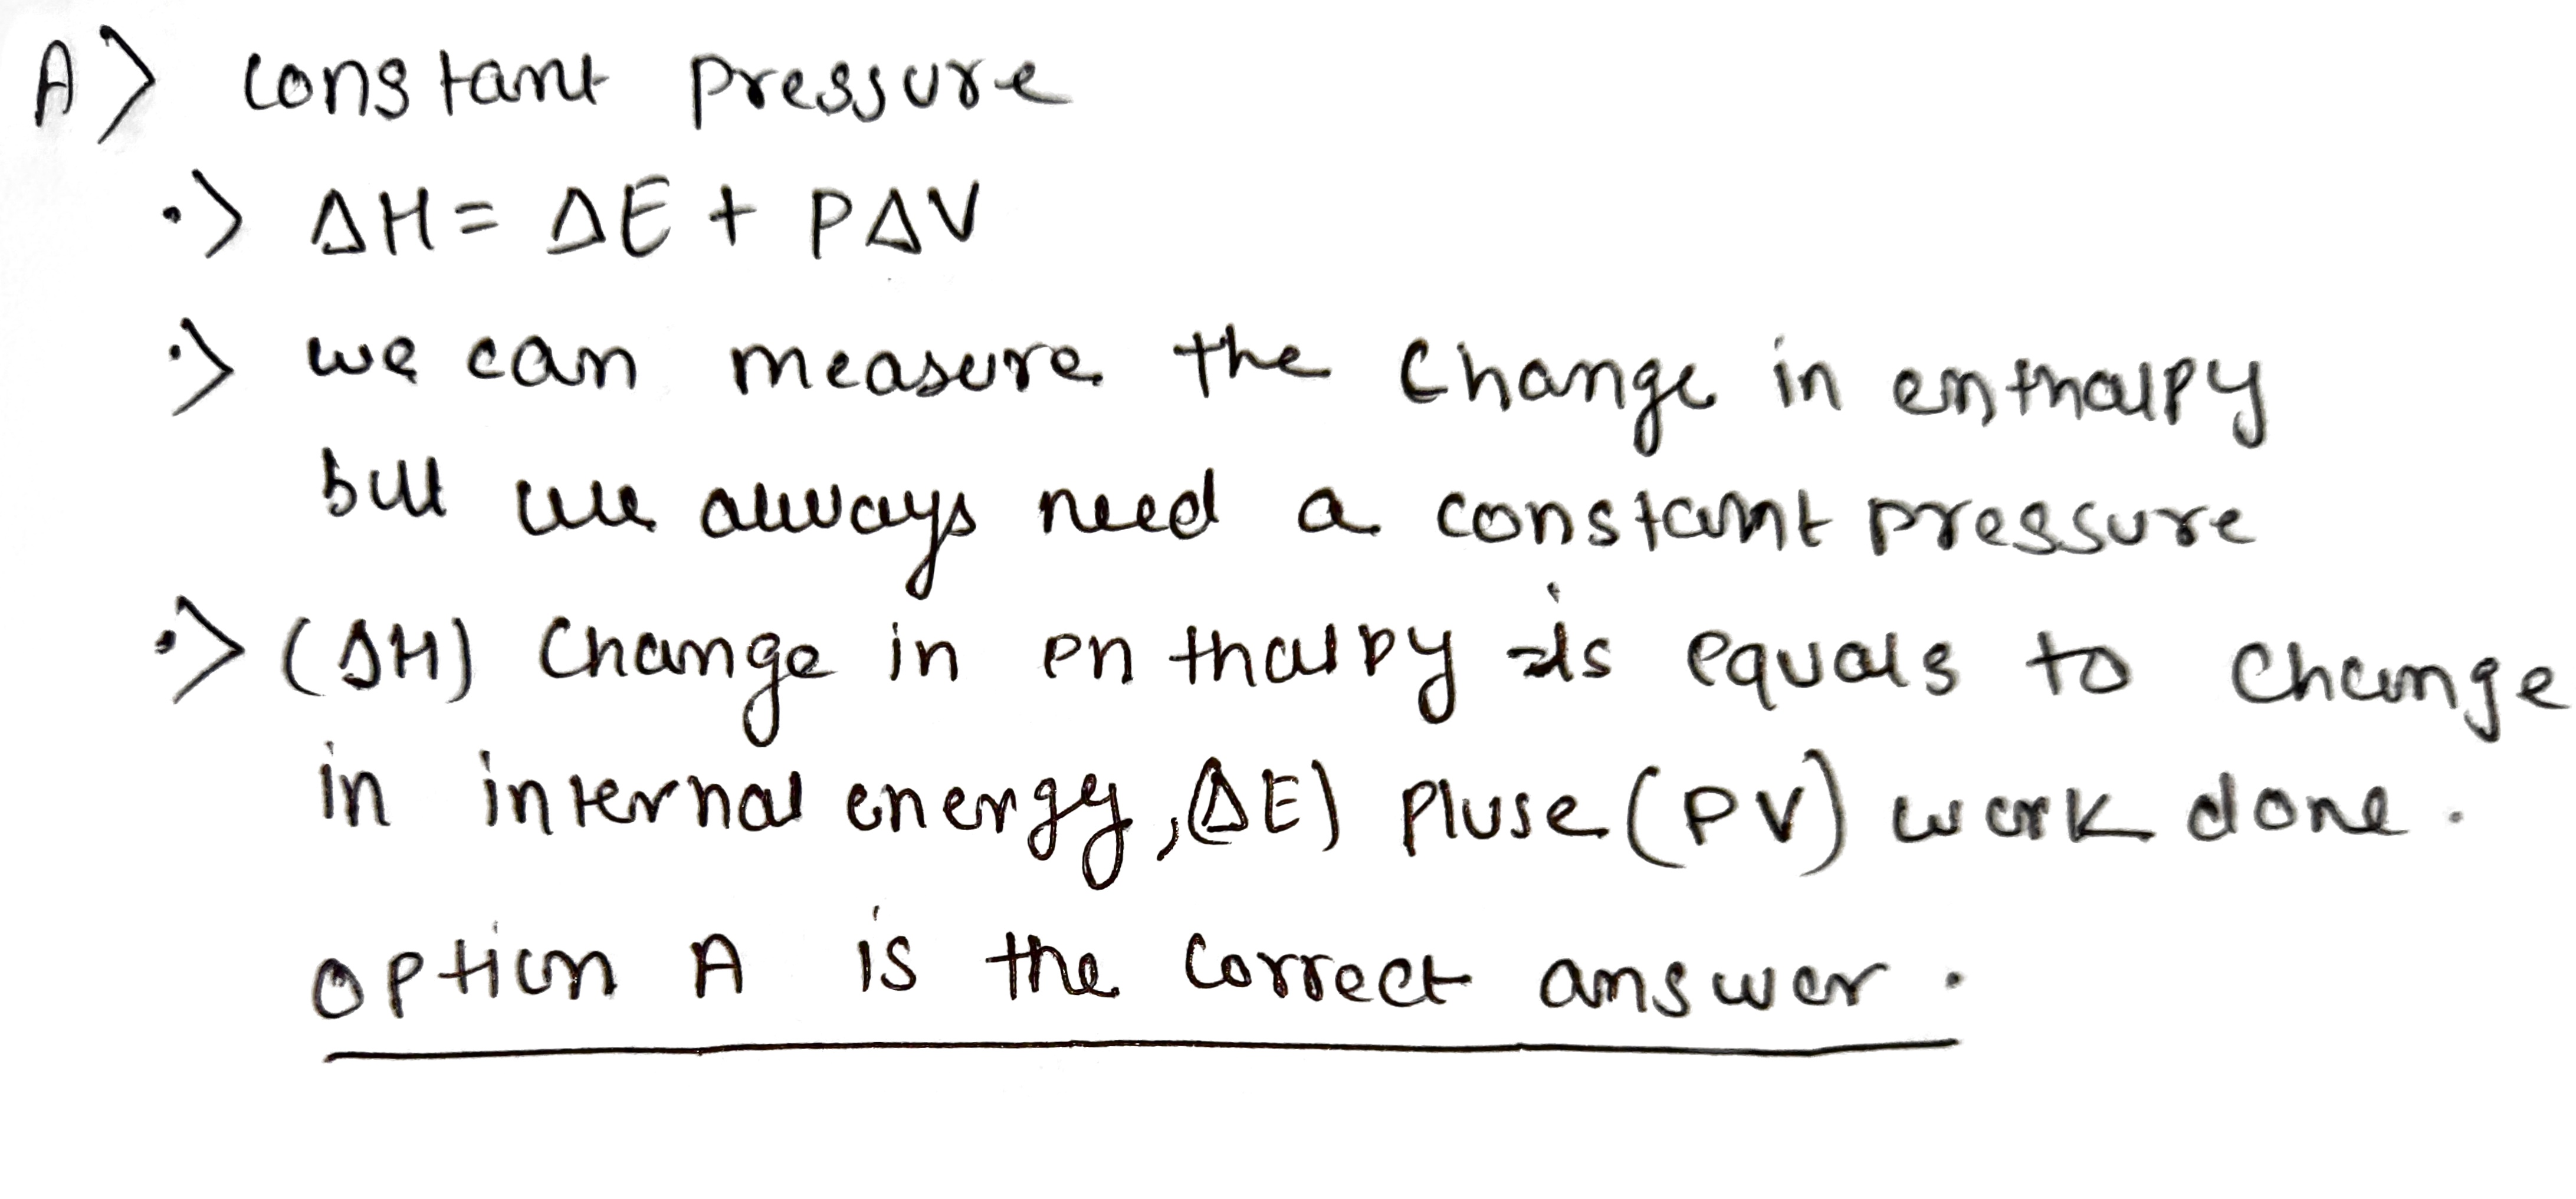 A> constant pressure
·> ΔH = ΔE + PΔV
·> we can measure the change in enthalpy
but we always need a constant pressure
·> (ΔH) change in enthalpy is equals to change
in internal energy, (ΔE) Pluse (PV) work done.
option A is the correct answer.